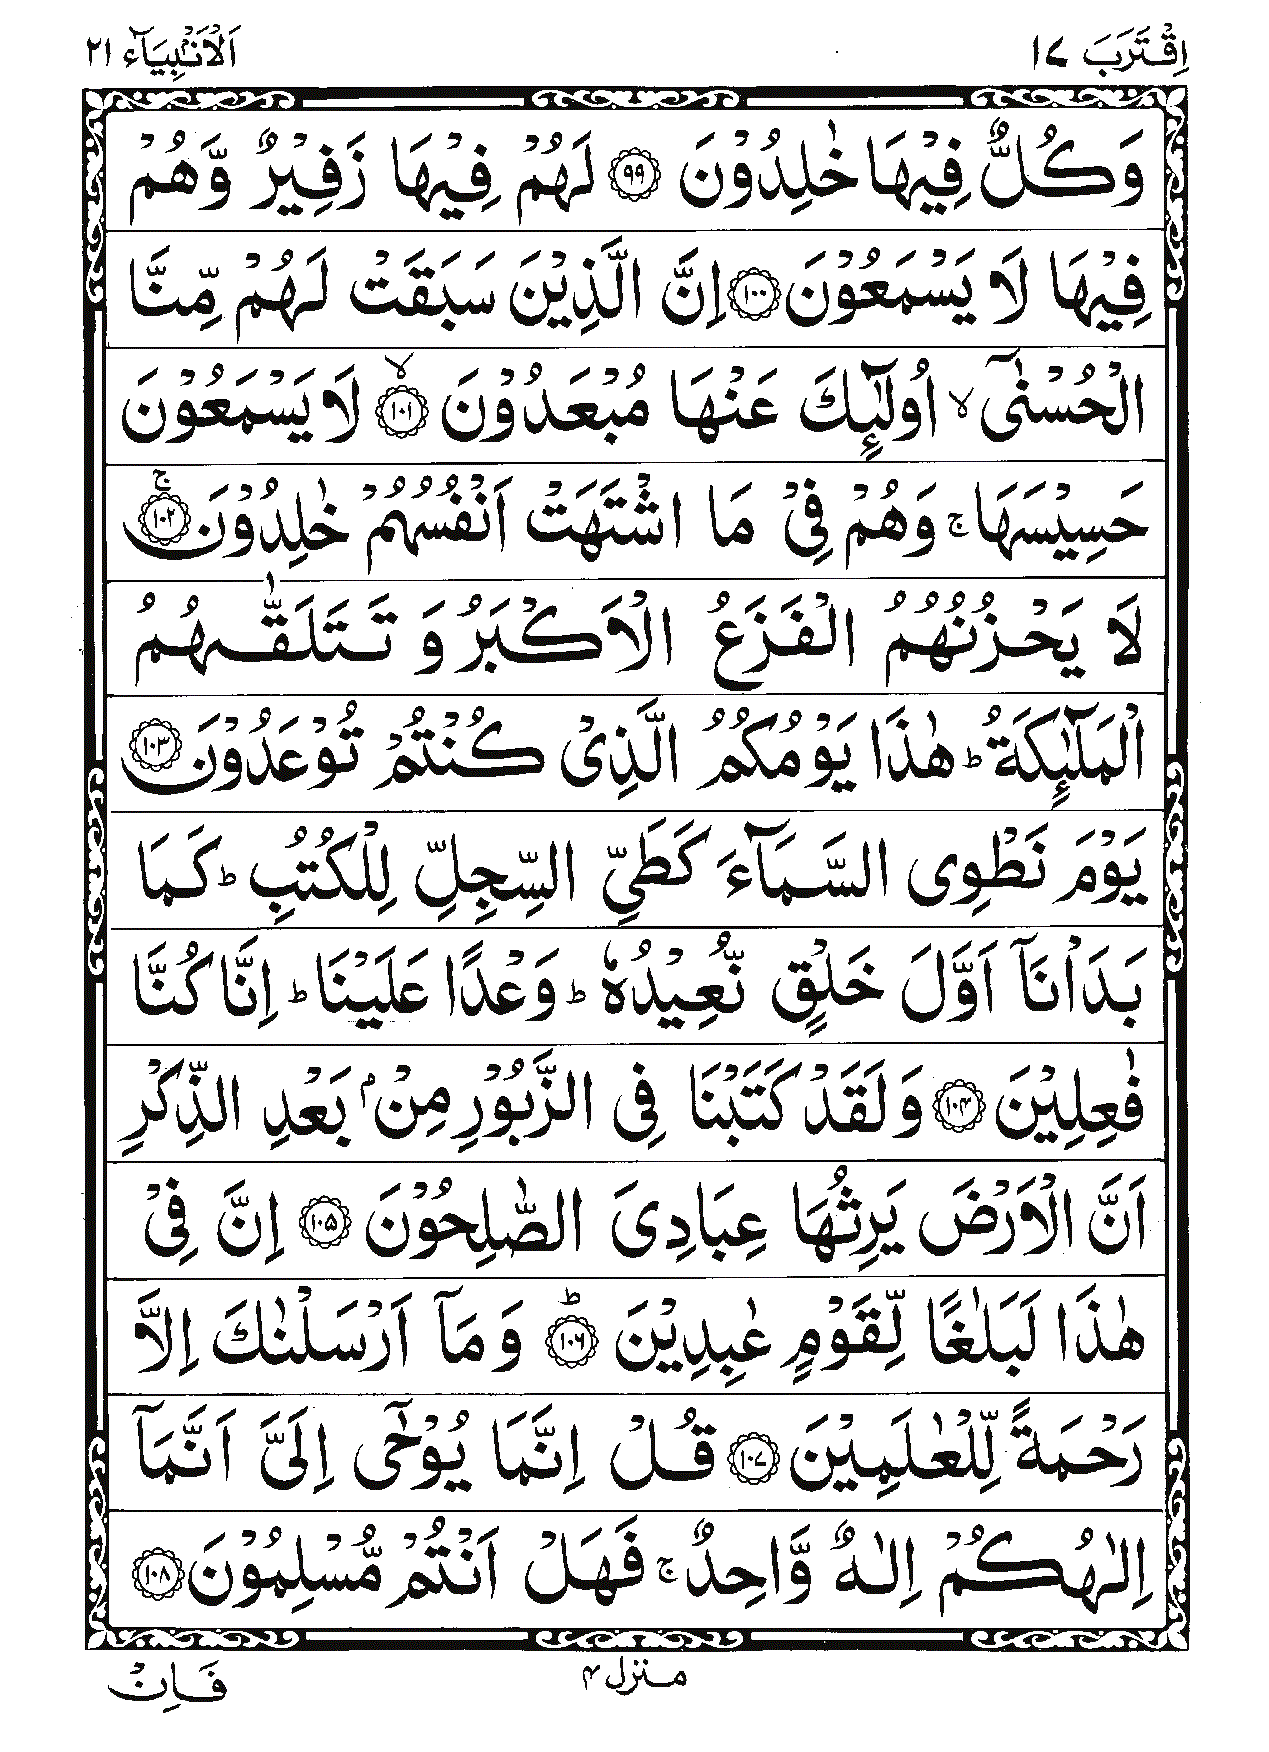 اِقْتَرَبَ ١٧
اَلْاَنْۢبِيَآء ٢١
وَكُلٌّ فِيْهَا خٰلِدُوْنَ ۝٩٩ لَهُمْ فِيْهَا زَفِيْرٌ وَّهُمْ
فِيْهَا لَا يَسْمَعُوْنَ ۝١٠٠ اِنَّ الَّذِيْنَ سَبَقَتْ لَهُمْ مِّنَّا
الْحُسْنٰۤى ۙ اُولٰٓئِكَ عَنْهَا مُبْعَدُوْنَ ۝١٠١ۙ لَا يَسْمَعُوْنَ
حَسِيْسَهَا ۚ وَهُمْ فِىْ مَا اشْتَهَتْ اَنْفُسُهُمْ خٰلِدُوْنَ ۝١٠٢ۚ
لَا يَحْزُنُهُمُ الْفَزَعُ الْاَكْبَرُ وَ تَتَلَقّٰىهُمُ
الْمَلٰٓئِكَةُ ؕ هٰذَا يَوْمُكُمُ الَّذِىْ كُنْتُمْ تُوْعَدُوْنَ ۝١٠٣
يَوْمَ نَطْوِى السَّمَآءَ كَطَىِّ السِّجِلِّ لِلْكُتُبِ ؕ كَمَا
بَدَاْنَاۤ اَوَّلَ خَلْقٍ نُّعِيْدُهٗ ؕ وَعْدًا عَلَيْنَا ؕ اِنَّا كُنَّا
فٰعِلِيْنَ ۝١٠٤ وَلَقَدْ كَتَبْنَا فِى الزَّبُوْرِ مِنْۢ بَعْدِ الذِّكْرِ
اَنَّ الْاَرْضَ يَرِثُهَا عِبَادِىَ الصّٰلِحُوْنَ ۝١٠٥ اِنَّ فِىْ
هٰذَا لَبَلٰغًا لِّقَوْمٍ عٰبِدِيْنَ ۝١٠٦ؕ وَ مَاۤ اَرْسَلْنٰكَ اِلَّا
رَحْمَةً لِّلْعٰلَمِيْنَ ۝١٠٧ قُلْ اِنَّمَا يُوْحٰۤى اِلَىَّ اَنَّمَاۤ
اِلٰهُكُمْ اِلٰهٌ وَّاحِدٌ ۚ فَهَلْ اَنْتُمْ مُّسْلِمُوْنَ ۝١٠٨
منزل ۴
فَاِنْ